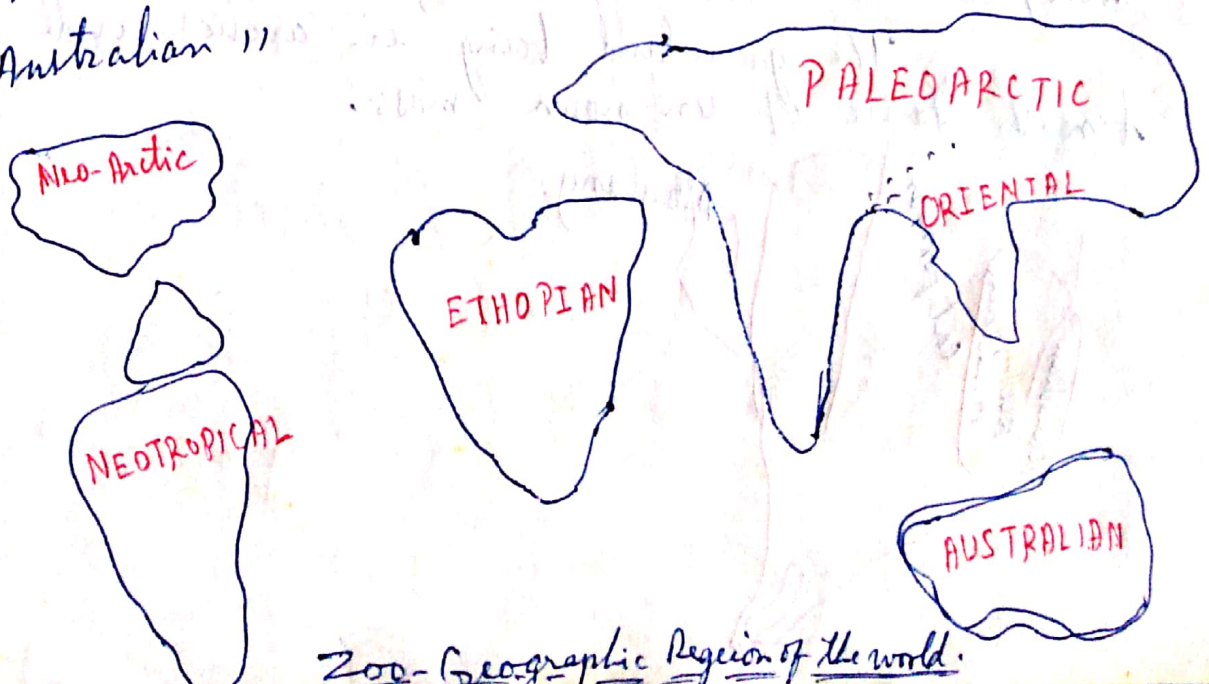 Australian "
PALEOARCTIC
Neo-Arctic
ORIENTAL
ETHOPIAN
NEOTROPICAL
AUSTRALIAN
Zoo-Geographic Regeion of the world.